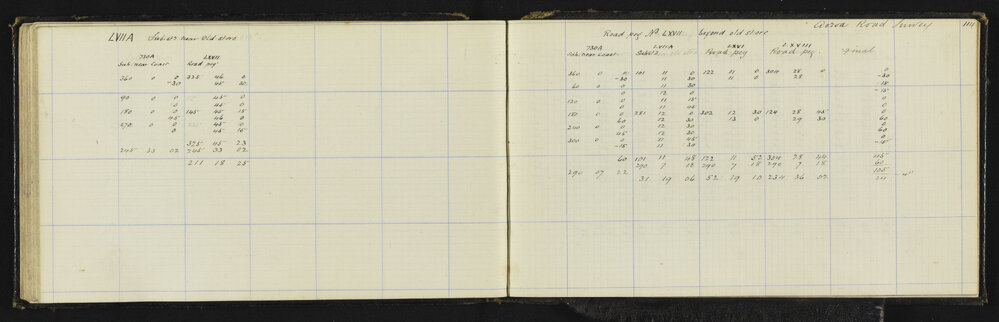 LVII A Subist: near Old store
730A LXVII
Sub. near Coast Road peg
360 0 0 325 46 0
-30 45 30
90 0 0 45 0
0 45 0
180 0 0 145 45 15
45 46 0
270 0 0 45 0
0 45 15
325 45 23
245 33 02 245 33 02
211 18 25
Road Survey 114
Road peg No LXVII beyond old store
730A LVII A LXVI LXVIII
Sub. near Coast Subist: Road peg Road peg. Signal
360 0 0 101 11 0 122 11 0 304 28 0 0
-30 11 30 11 0 28 -30
60 0 0 11 30 -15
0 12 0 -15
120 0 0 11 15 0
0 11 45 0
180 0 0 281 12 0 302 12 30 124 28 45 0
60 12 30 13 0 29 30 60
240 0 0 12 30 0
45 12 30 60
300 0 0 11 45 0
-15 11 30 -15
60 101 11 48 122 11 52 304 28 44 45
290 7 12 290 7 18 290 7 18 60
290 07 22 105
31 19 06 52 19 10 234 36 02